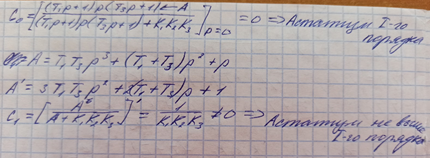 C₀ = [(T₁p+1)p(T₃p+1) ← A / (T₁p+1)p(T₃p+1)+K₁K₂K₃]p=0 = 0 => Астатизм I-го порядка
A = T₁T₃p³ + (T₁+T₃)p² + p
A' = 3T₁T₃p² + 2(T₁+T₃)p + 1
C₁ = [A / A+K₁K₂K₃]' = 1 / K₁K₂K₃ ≠ 0 => Астатизм не выше I-го порядка